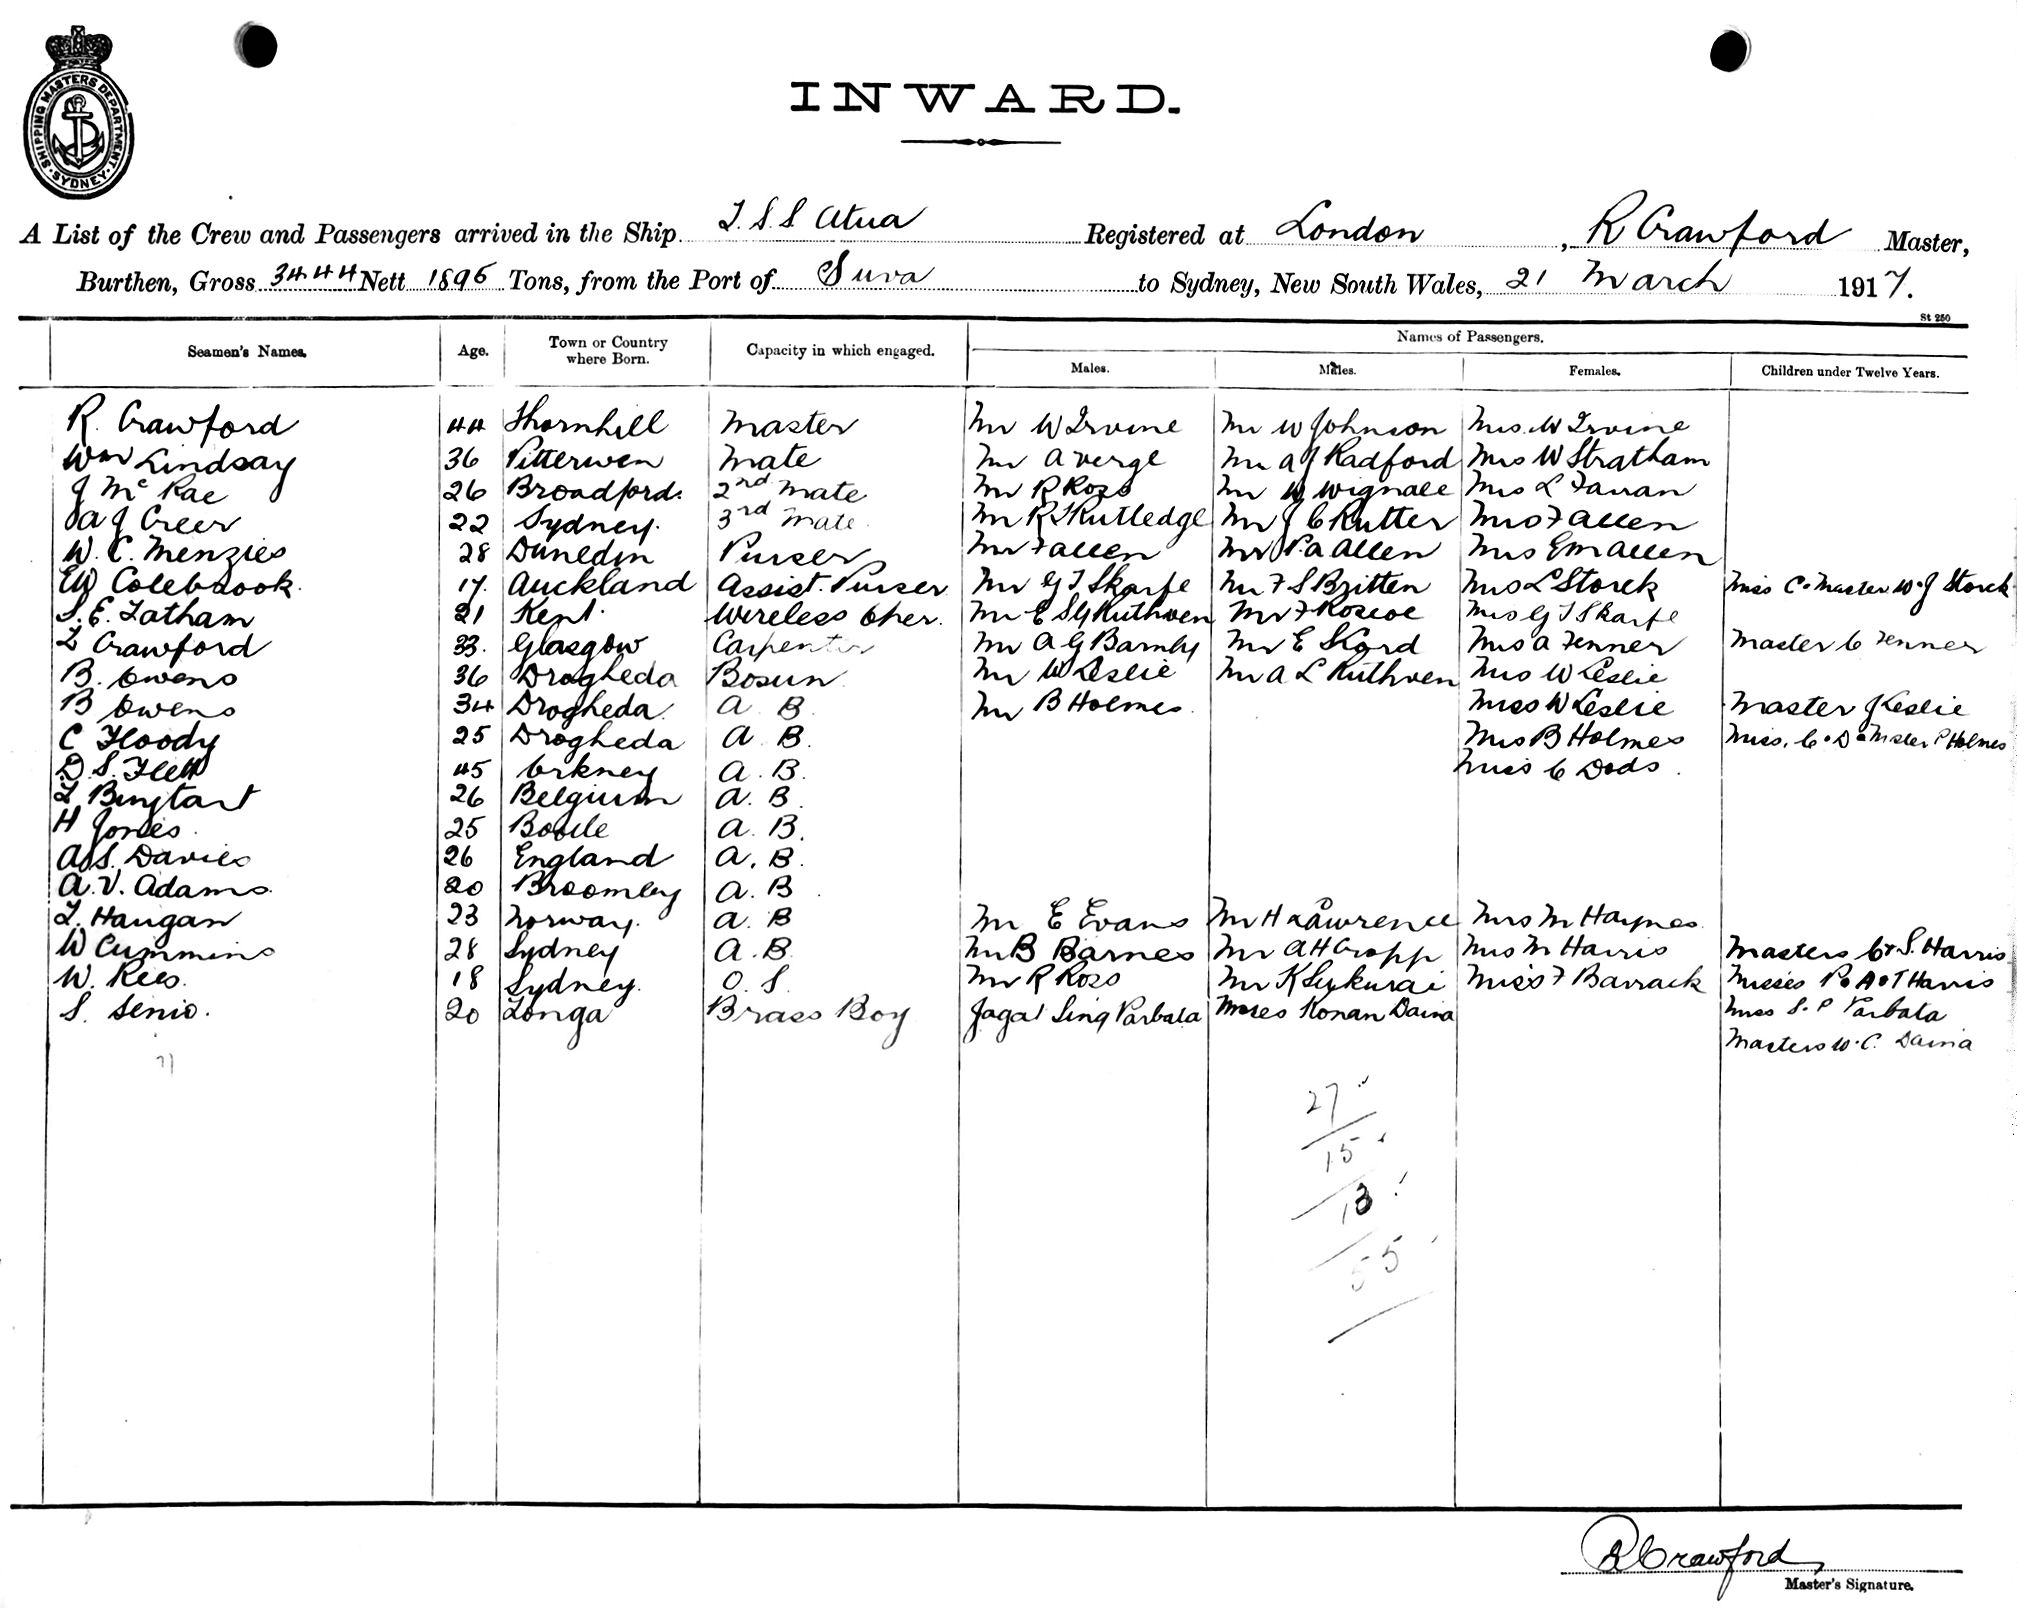 SHIPPING MASTERS DEPARTMENT
SYDNEY
INWARD.
A List of the Crew and Passengers arrived in the Ship T.S.S Atua Registered at London, R Crawford Master,
Burthen, Gross 3444 Nett 1896 Tons, from the Port of Suva to Sydney, New South Wales, 21 March 1917.
St 250
Seamen's Names. Age. Town or Country where Born. Capacity in which engaged. Names of Passengers.
Males. Males. Females. Children under Twelve Years.
R. Crawford 44 Thornhill Master Mr W Irvine Mr W Johnson Mrs. W Irvine
Wm Lindsay 36 Pitterwen Mate Mr A Verge Mr A J Radford Mrs W Stratham
J McRae 26 Broadford. 2nd Mate Mr R Ross Mr W Wignall Mrs L Farran
A J Creer 22 Sydney. 3rd Mate Mr R T Rutledge Mr J C Rutter Mrs F Allen
W. C. Menzies 28 Dunedin Purser Mr F Allen Mr P. A Allen Mrs E M Allen
E W Colebrook. 17. Auckland Assist. Purser Mr G T Skarfe Mr F S Britten Mrs L Storck Miss C. Master W. J Storck
S. E. Latham 21 Kent. Wireless Oper. Mr E S G Ruthven Mr F Roscoe Mrs G T Skarfe
T Crawford 33. Glasgow Carpenter Mr A G Barnby Mr E Mrs A Fenner Master C Fenner
B. Owens 36 Drogheda Bosun Mr W Leslie Mr A L Ruthven Mrs W Leslie
B Owens 34 Drogheda A B Mr B Holmes Miss W Leslie Master J Leslie
C Floody 25 Drogheda A B. Mrs B Holmes Miss. C. D. Master P Holmes
D. S. Flett 45 Orkney A. B. Miss C Dods
26 Belgium A. B
H Jones 25 Bootle A. B.
A S. Davies 26 England A. B.
A. V. Adams 20 Broomley A. B
T. Haugan 23 Norway. A. B Mr E Evans Mr H Lawrence Mrs M Haynes
W Cummins 28 Sydney A. B. Mr B Barnes Mr A H Cropp Mrs M Harris Masters C. S. Harris
W. Rees. 18 Sydney. O. S. Mr R Ross Mr K Sukurai Miss F Barrack Misses P. A. T Harris
S. Senio. 20 Tonga Brass Boy Jagat Sing Parbata Moses Konan Daina Miss S. P Parbata
Masters W. C. Daina
27
15
13
55
R Crawford
Master's Signature.